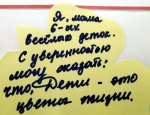 Я, мама
6-ых
весёлых деток.
С уверенностью
могу сказать:
что, Дети - это
цветы жизни.